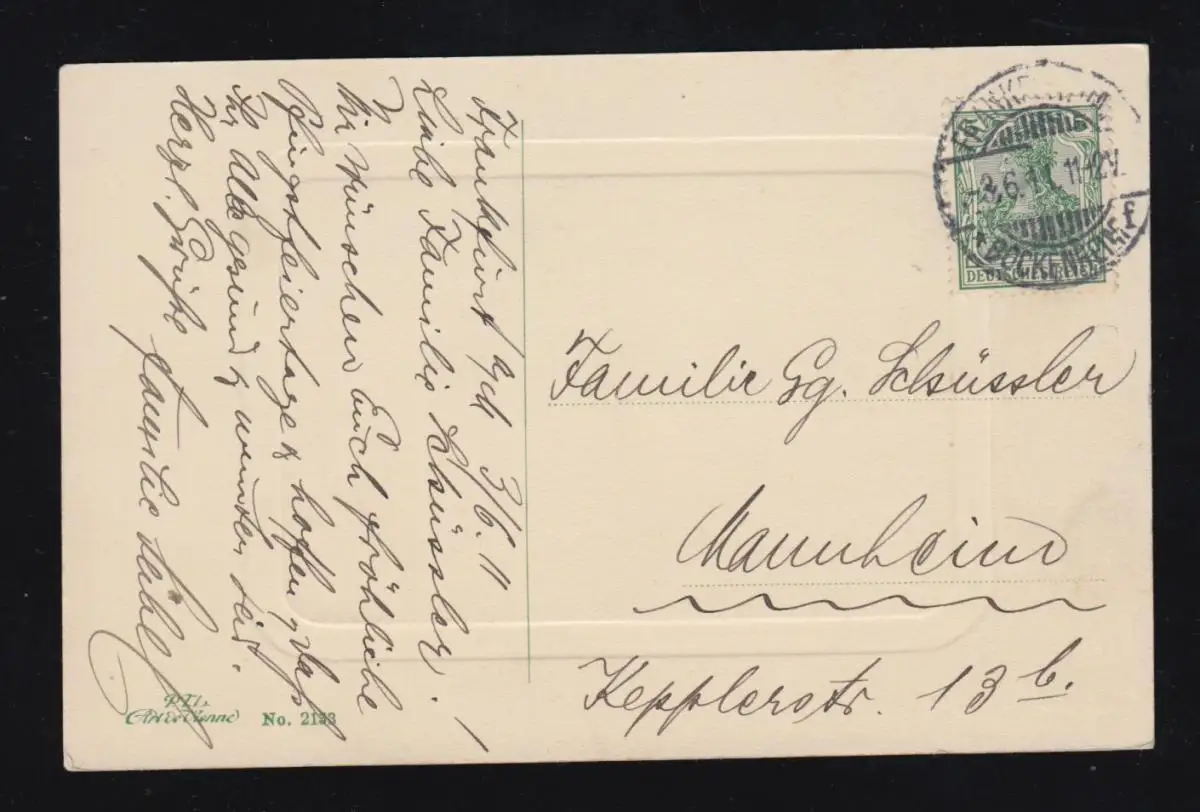 Frankfurt 3/6.11
Liebe Familie Schüssler!
Wir wünschen Euch fröhliche
Pfingstfeiertage & hoffen, daß
Ihr Alle gesund & munter seid.
Herzl. Grüße Familie
FRANKFURT
-3,6.11 11-12V.
* BOCKENHEIM f
DEUTSCHES REICH
Familie Gg. Schüssler
Mannheim
Kepplerstr. 13 b.
No. 2133